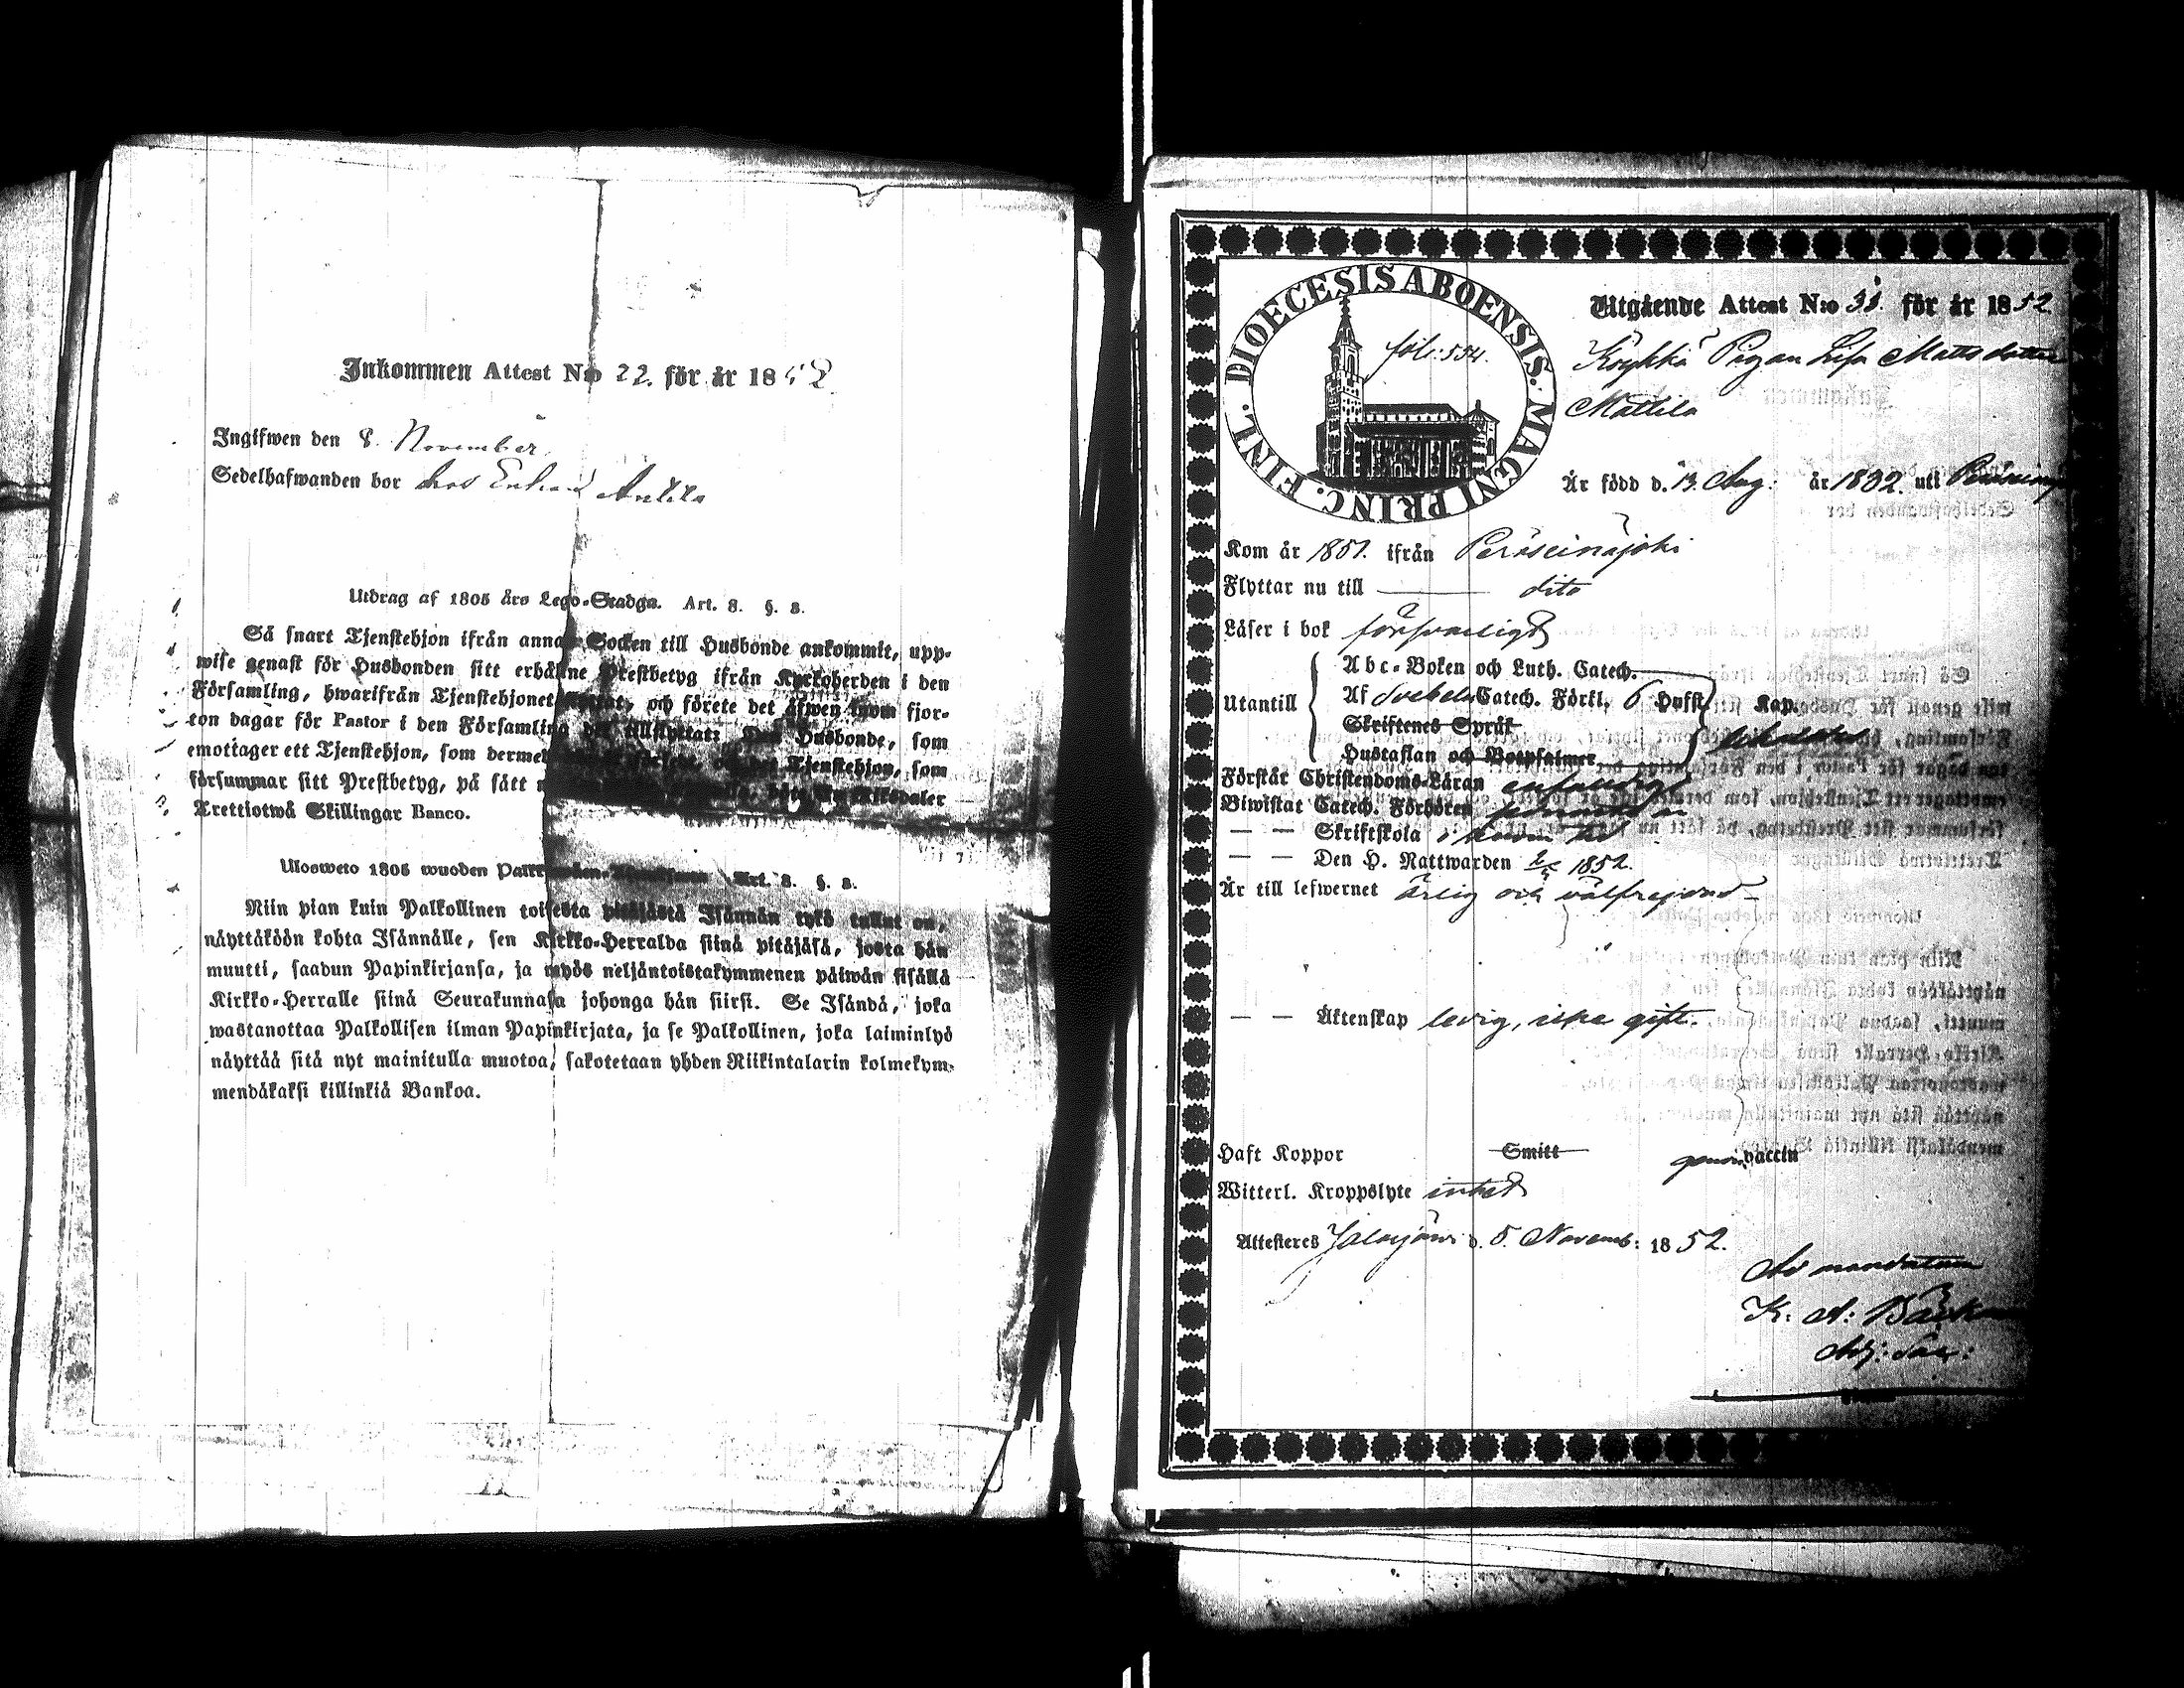 Inkommen Attest N:o 22. för år 1852
Ingifwen den 8. November.
Sedelhafwanden bor hos Enkan Antila
Utdrag af 1805 års Lego-Stadga. Art. 3. §. 3.
Så snart Tjenstehjon ifrån annan Socken till Husbonde ankommit, upp-
wise genast för Husbonden sitt erhållne Prestbetyg ifrån Kyrkoherden i den
Församling, hwarifrån Tjenstehjonet flyttat, och förete det äfwen inom fjor-
ton dagar för Pastor i den Församling det tillflyttat: Den Husbonde, som
emottager ett Tjenstehjon, som dermed Tjenstehjon, som
försummar sitt Prestbetyg, på sätt Riksdaler
Trettiotwå Skillingar Banco.
Ulosweto 1805 wuoden Art. 3. §. 3.
Niin pian kuin Palkollinen toisesta pitäjästä Isännän tykö tullut on,
näyttäköön kohta Isännälle, sen Kirkko-Herralda siinä pitäjäsä, josta hän
muutti, saadun Papinkirjansa, ja myös neljäntoistakymmenen päiwän sisällä
Kirkko-Herralle siinä Seurakunnasa johonga hän siirsi. Se Isändä, joka
wastanottaa Palkollisen ilman Papinkirjata, ja se Palkollinen, joka laiminlyö
näyttää sitä nyt mainitulla muotoa, sakotetaan yhden Riikintalarin kolmekym-
mendäkaksi killinkiä Bankoa.
DIOECESIS ABOENSIS. MAGNI PRINC. FINL.
fol: 554.
Utgående Attest N:o 33. för år 1852.
Köykkä Pigan Lisa Matts dotter
Mattila
Är född d. 13. Aug: år 1832. uti
Kom år 1851. ifrån Peräseinäjoki
Flyttar nu till dito
Läser i bok försvarligt
Utantill
Abc-Boken och Luth. Catech.
Af Svebeli Catech. Förkl. 6 Hufst. Kap.
Skriftenes Språk
Hustaflan och Botpsalmer
Förstår Christendoms-Läran enfaldigt
Biwistat Catech. Förhören
— — Skriftskola i
— — Den H. Nattwarden 1852.
Är till lefwernet ärlig och välfrejdad
— — Äktenskap ledig, icke gift.
Haft Koppor Smitt genom vaccin
Witterl. Kroppslyte intet
Attesteres Jalasjärvi d. 5. Novemb: 1852.
Ad mandatum
K: A:
Adj: Sac: